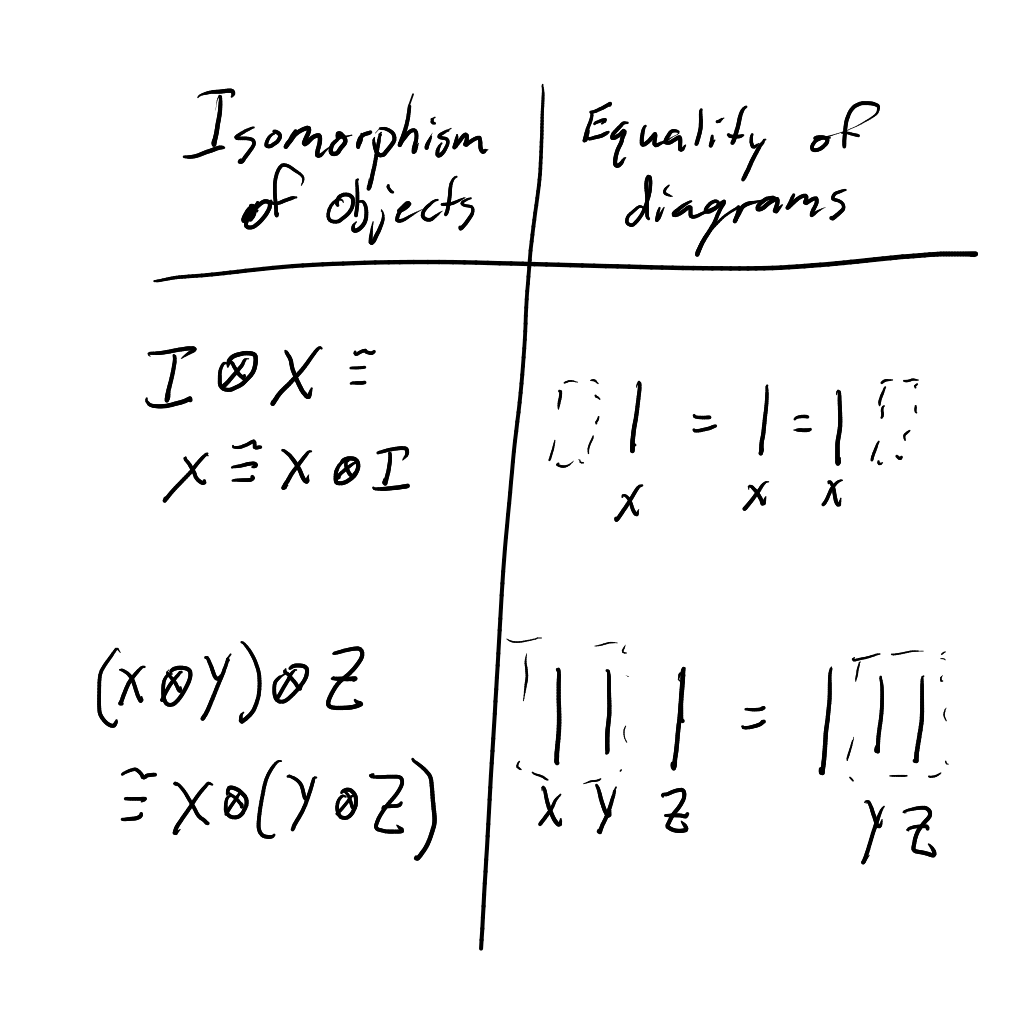 Isomorphism
of objects
Equality of
diagrams
I ⊗ X ≅
X ≅ X ⊗ I
| = | = |
X X X
(X ⊗ Y) ⊗ Z
≅ X ⊗ (Y ⊗ Z)
| | | = | | |
X Y Z Y Z